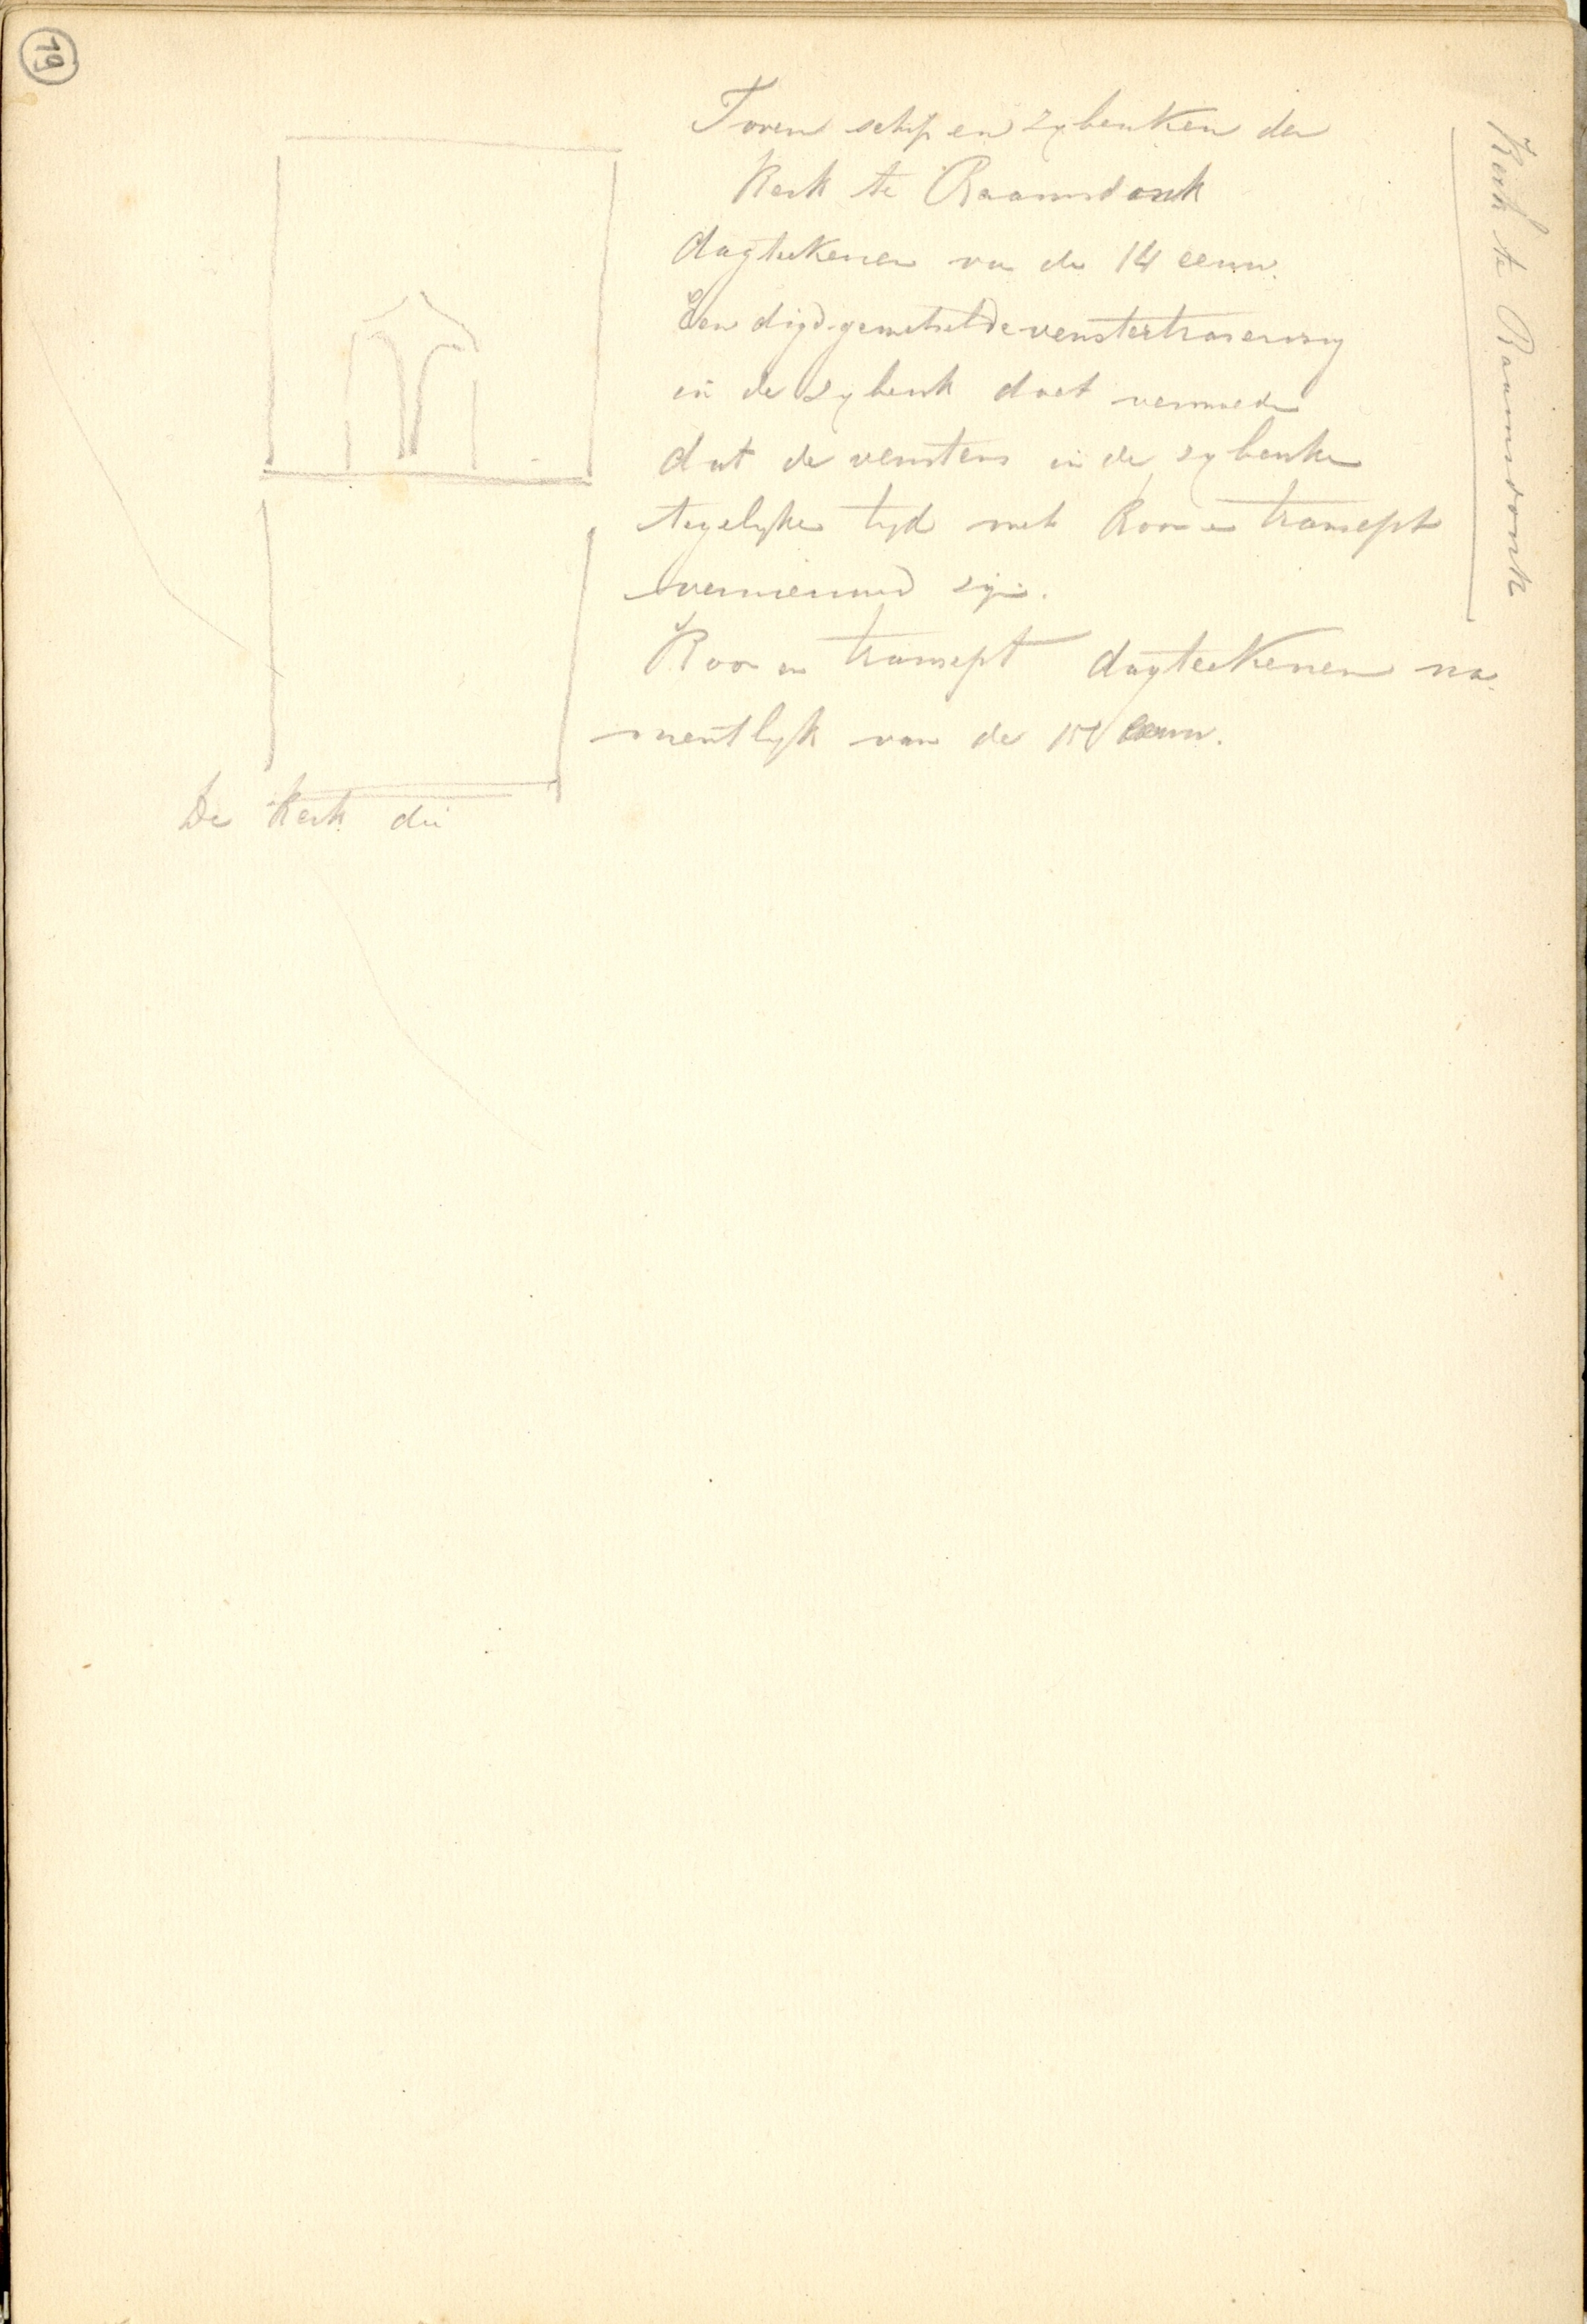 19
Kerk te Raamsdonk
Toren schip en zybeuken der
Kerk te Raamsdonk
dagteekenen van de 14 eeuw.
Een digdgemetselde venstertraseering
in de zybeuk doet vermoeden
dat de vensters in de zybeuken
tegelyker tyd met Koor en transept
vernieuwd zijn.
Koor en transept dagteekenen na
mentlyk van de 15e eeuw.
De Kerk die